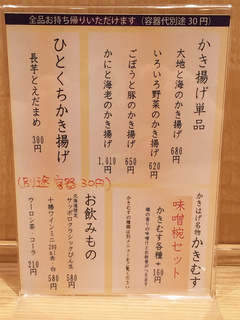 全品お持ち帰りいただけます（容器代別途30円）
かき揚げ単品
大地と海のかき揚げ 680円
いろいろ野菜のかき揚げ 620円
ごぼうと豚のかき揚げ 650円
かにと海老のかき揚げ 1,010円
ひとくちかき揚げ
長芋とえだまめ 300円
(別途 容器 30円)
かきあげ名物 かきむす
味噌椀セット
かきむす各種＋160円
お飲みもの
北海道限定
サッポロクラシックびん生 580円
十勝ワインミニ 280ml 赤・白 580円
ウーロン茶・コーラ 210円